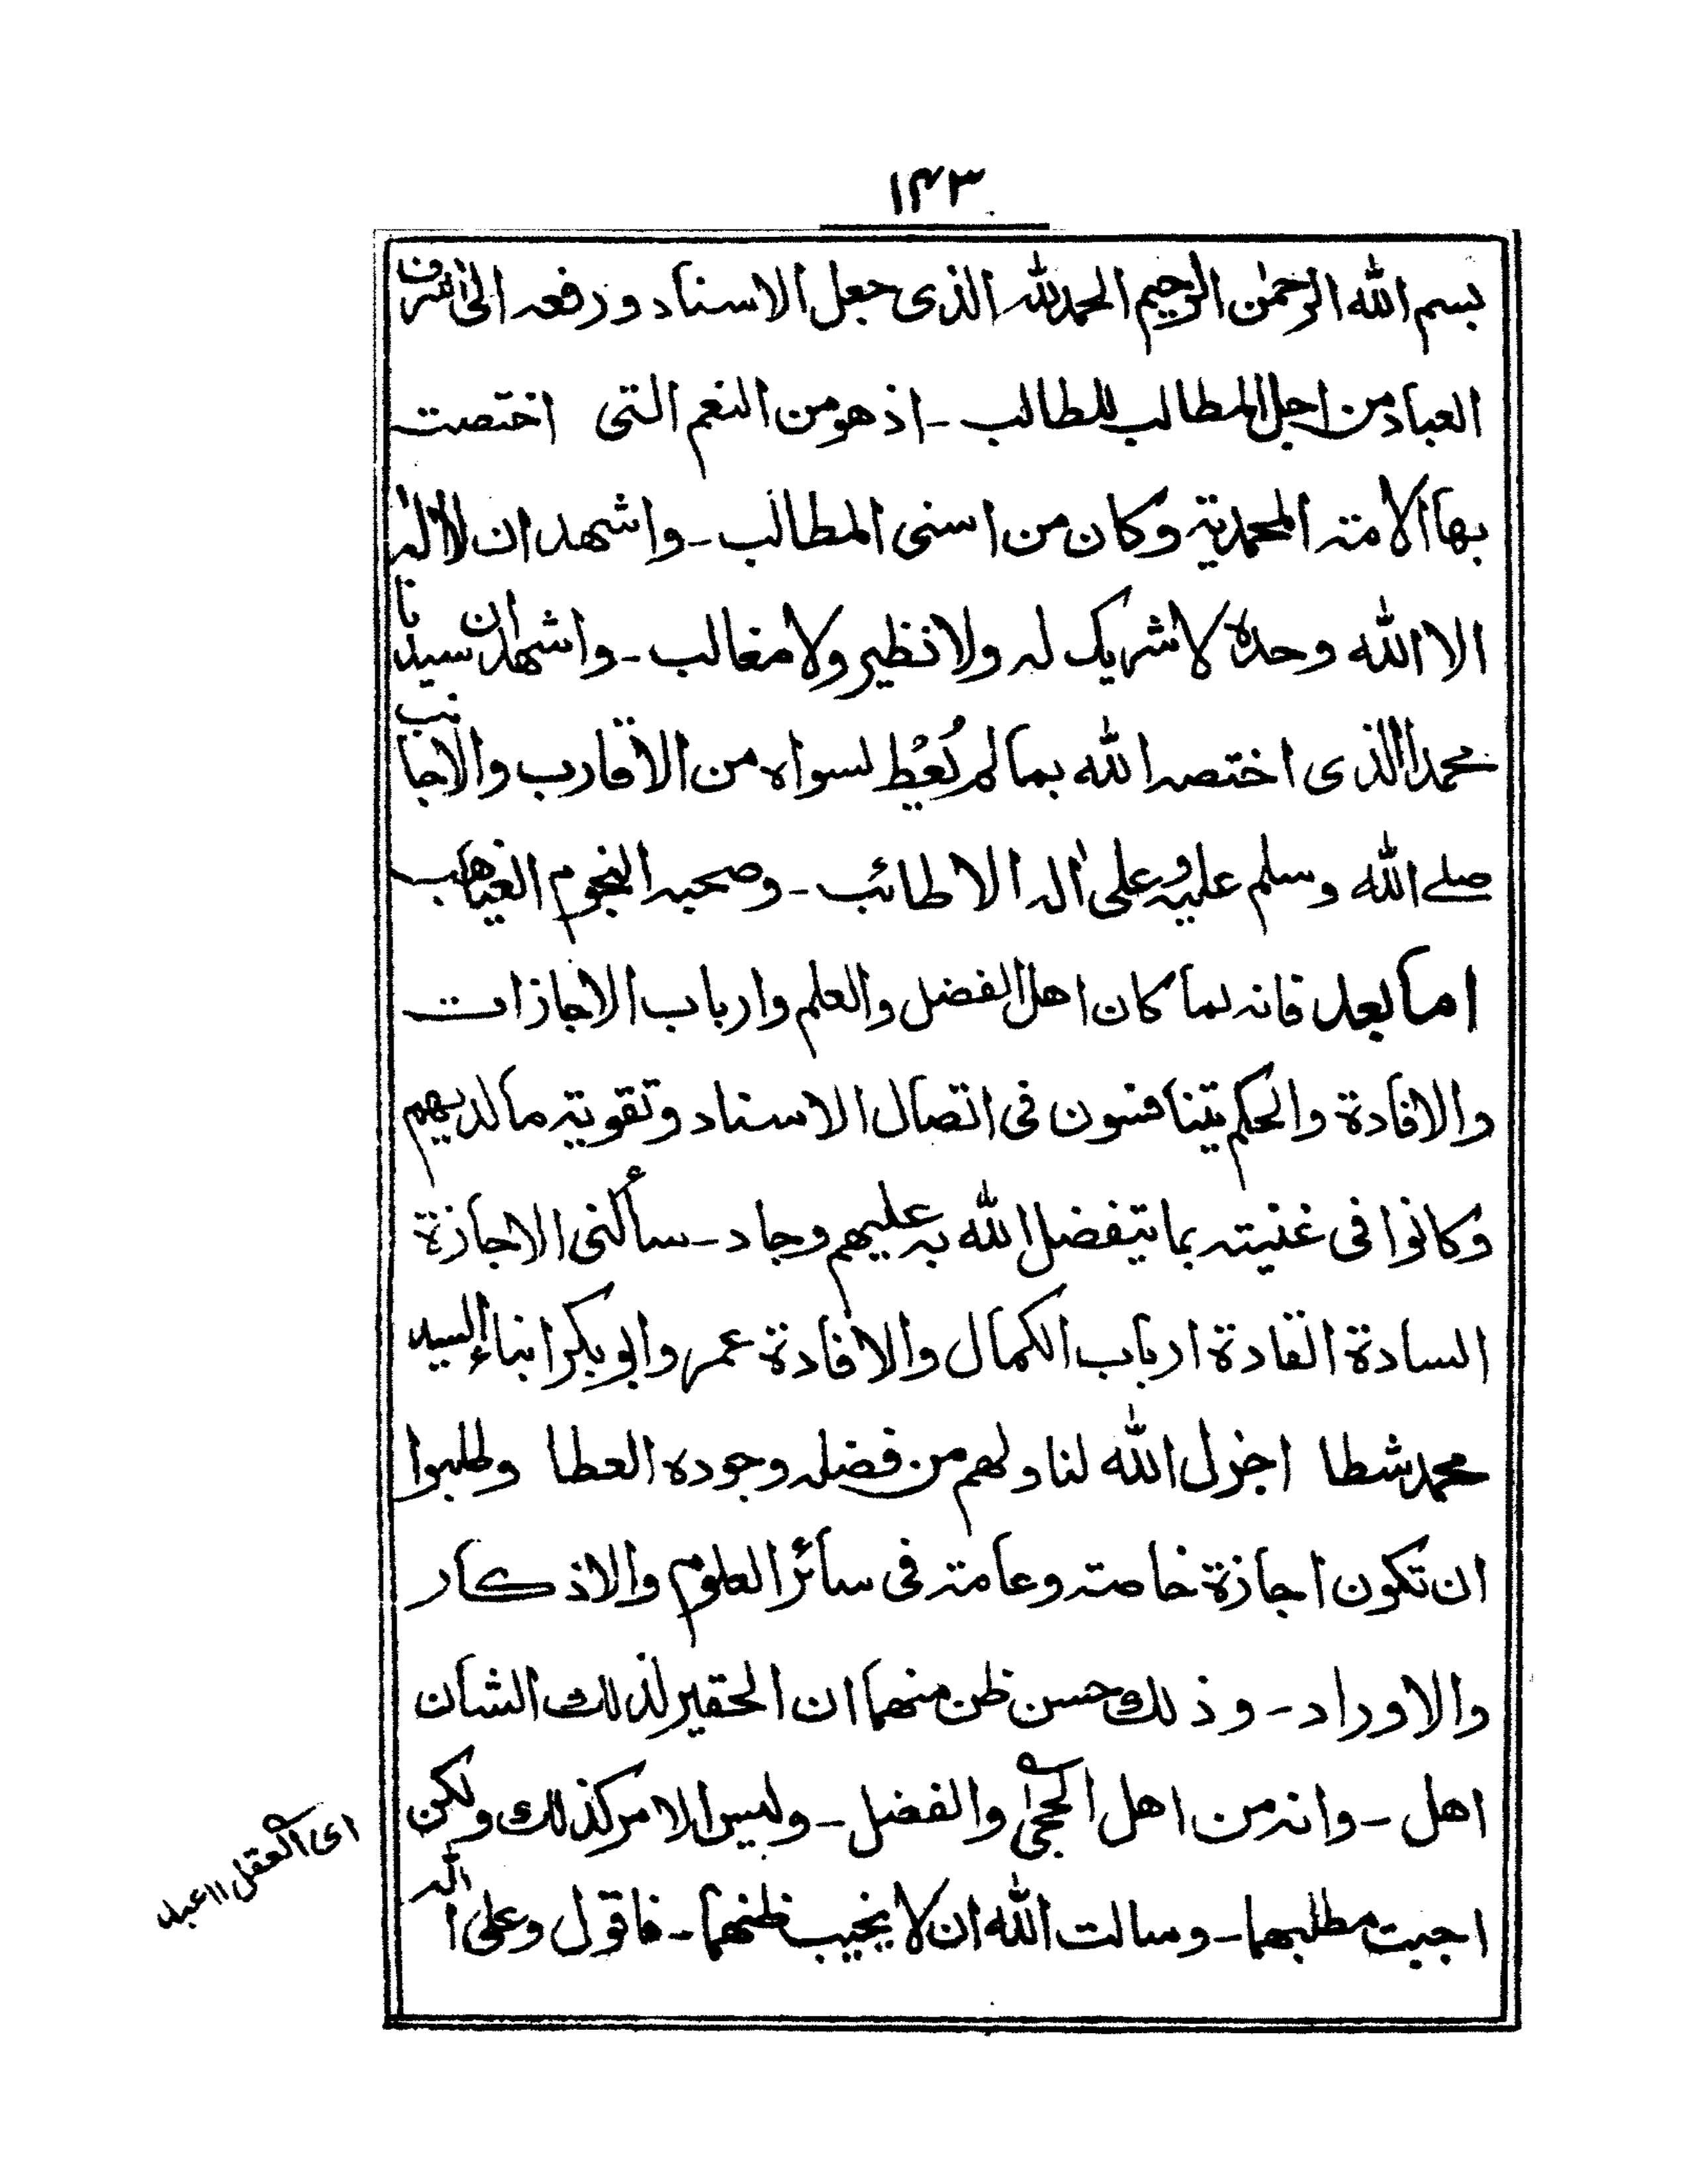 ۱۴۳
بسم الله الرحمٰن الرحيم الحمد لله الذى جعل الاسناد ورفعه الىٰ اشرف
العباد من اجل المطالب للطالب - اذ هو من النعم التى اختصت
بها الامة المحمدية وكان من اسنى المطالب - واشهد ان لا اله
الا الله وحده لا شريك له ولا نظير ولا مغالب - واشهد ان سيدنا
محمدا الذى اختصه الله بما لم يُعْطِ لسواه من الاقارب والاجانب
صلے الله وسلم عليه وعلى اٰله الاطائب - وصحبه النجوم الغياهب
اما بعد فانه لما كان اهل الفضل والعلم وارباب الاجازات
والافادة والحكم يتنافسون فى اتصال الاسناد وتقوية ما لديهم
وكانوا فى غنية بما يتفضل الله به عليهم وجاد - سألنى الاجازة
السادة القادة ارباب الكمال والافادة عمر وابو بكر ابناء السيد
محمد شطا اجزل الله لنا ولهم من فضله وجوده العطا وطلبوا
ان تكون اجازة خاصة وعامة فى سائر العلوم والاذكار
والاوراد - وذلك حسن ظن منهما ان الحقير لذلك الشان
اهل - وانه من اهل الحجىٰ والفضل - وليس الامر كذلك ولكن
اجبت مطلبهما - وسالت الله ان لا يخيب ظنهما - فاقول وعلى الله
اى العقل ۱۱ عبد